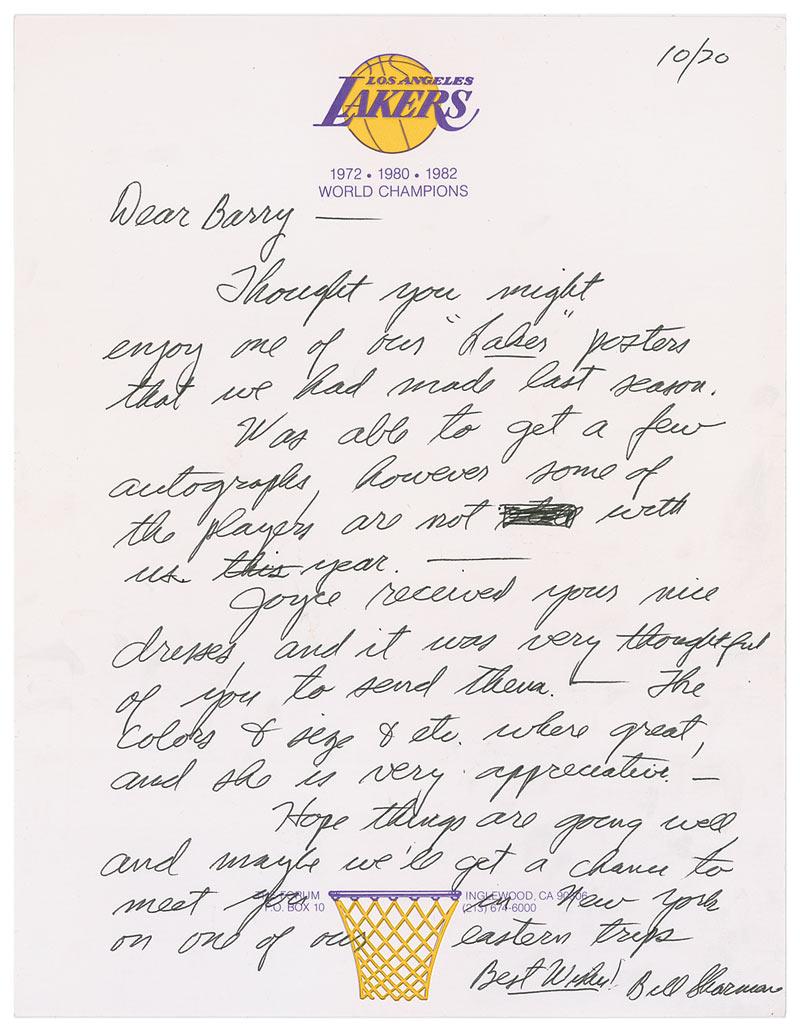 10/20
LOS ANGELES
LAKERS
1972 • 1980 • 1982
WORLD CHAMPIONS
Dear Barry —
Thought you might
enjoy one of our "Laker" posters
that we had made last season.
Was able to get a few
autographs, however some of
the players are not with
us this year. —
Joyce received your nice
dresses, and it was very thoughtful
of you to send them. — The
colors & size & etc. where great,
and she is very appreciative. —
Hope things are going well
and maybe we'll get a chance to
meet you in New York
THE FORUM
P.O. BOX 10
INGLEWOOD, CA 90306
(213) 674-6000
on one of our eastern trips
Best Wishes!
Bill Sharman